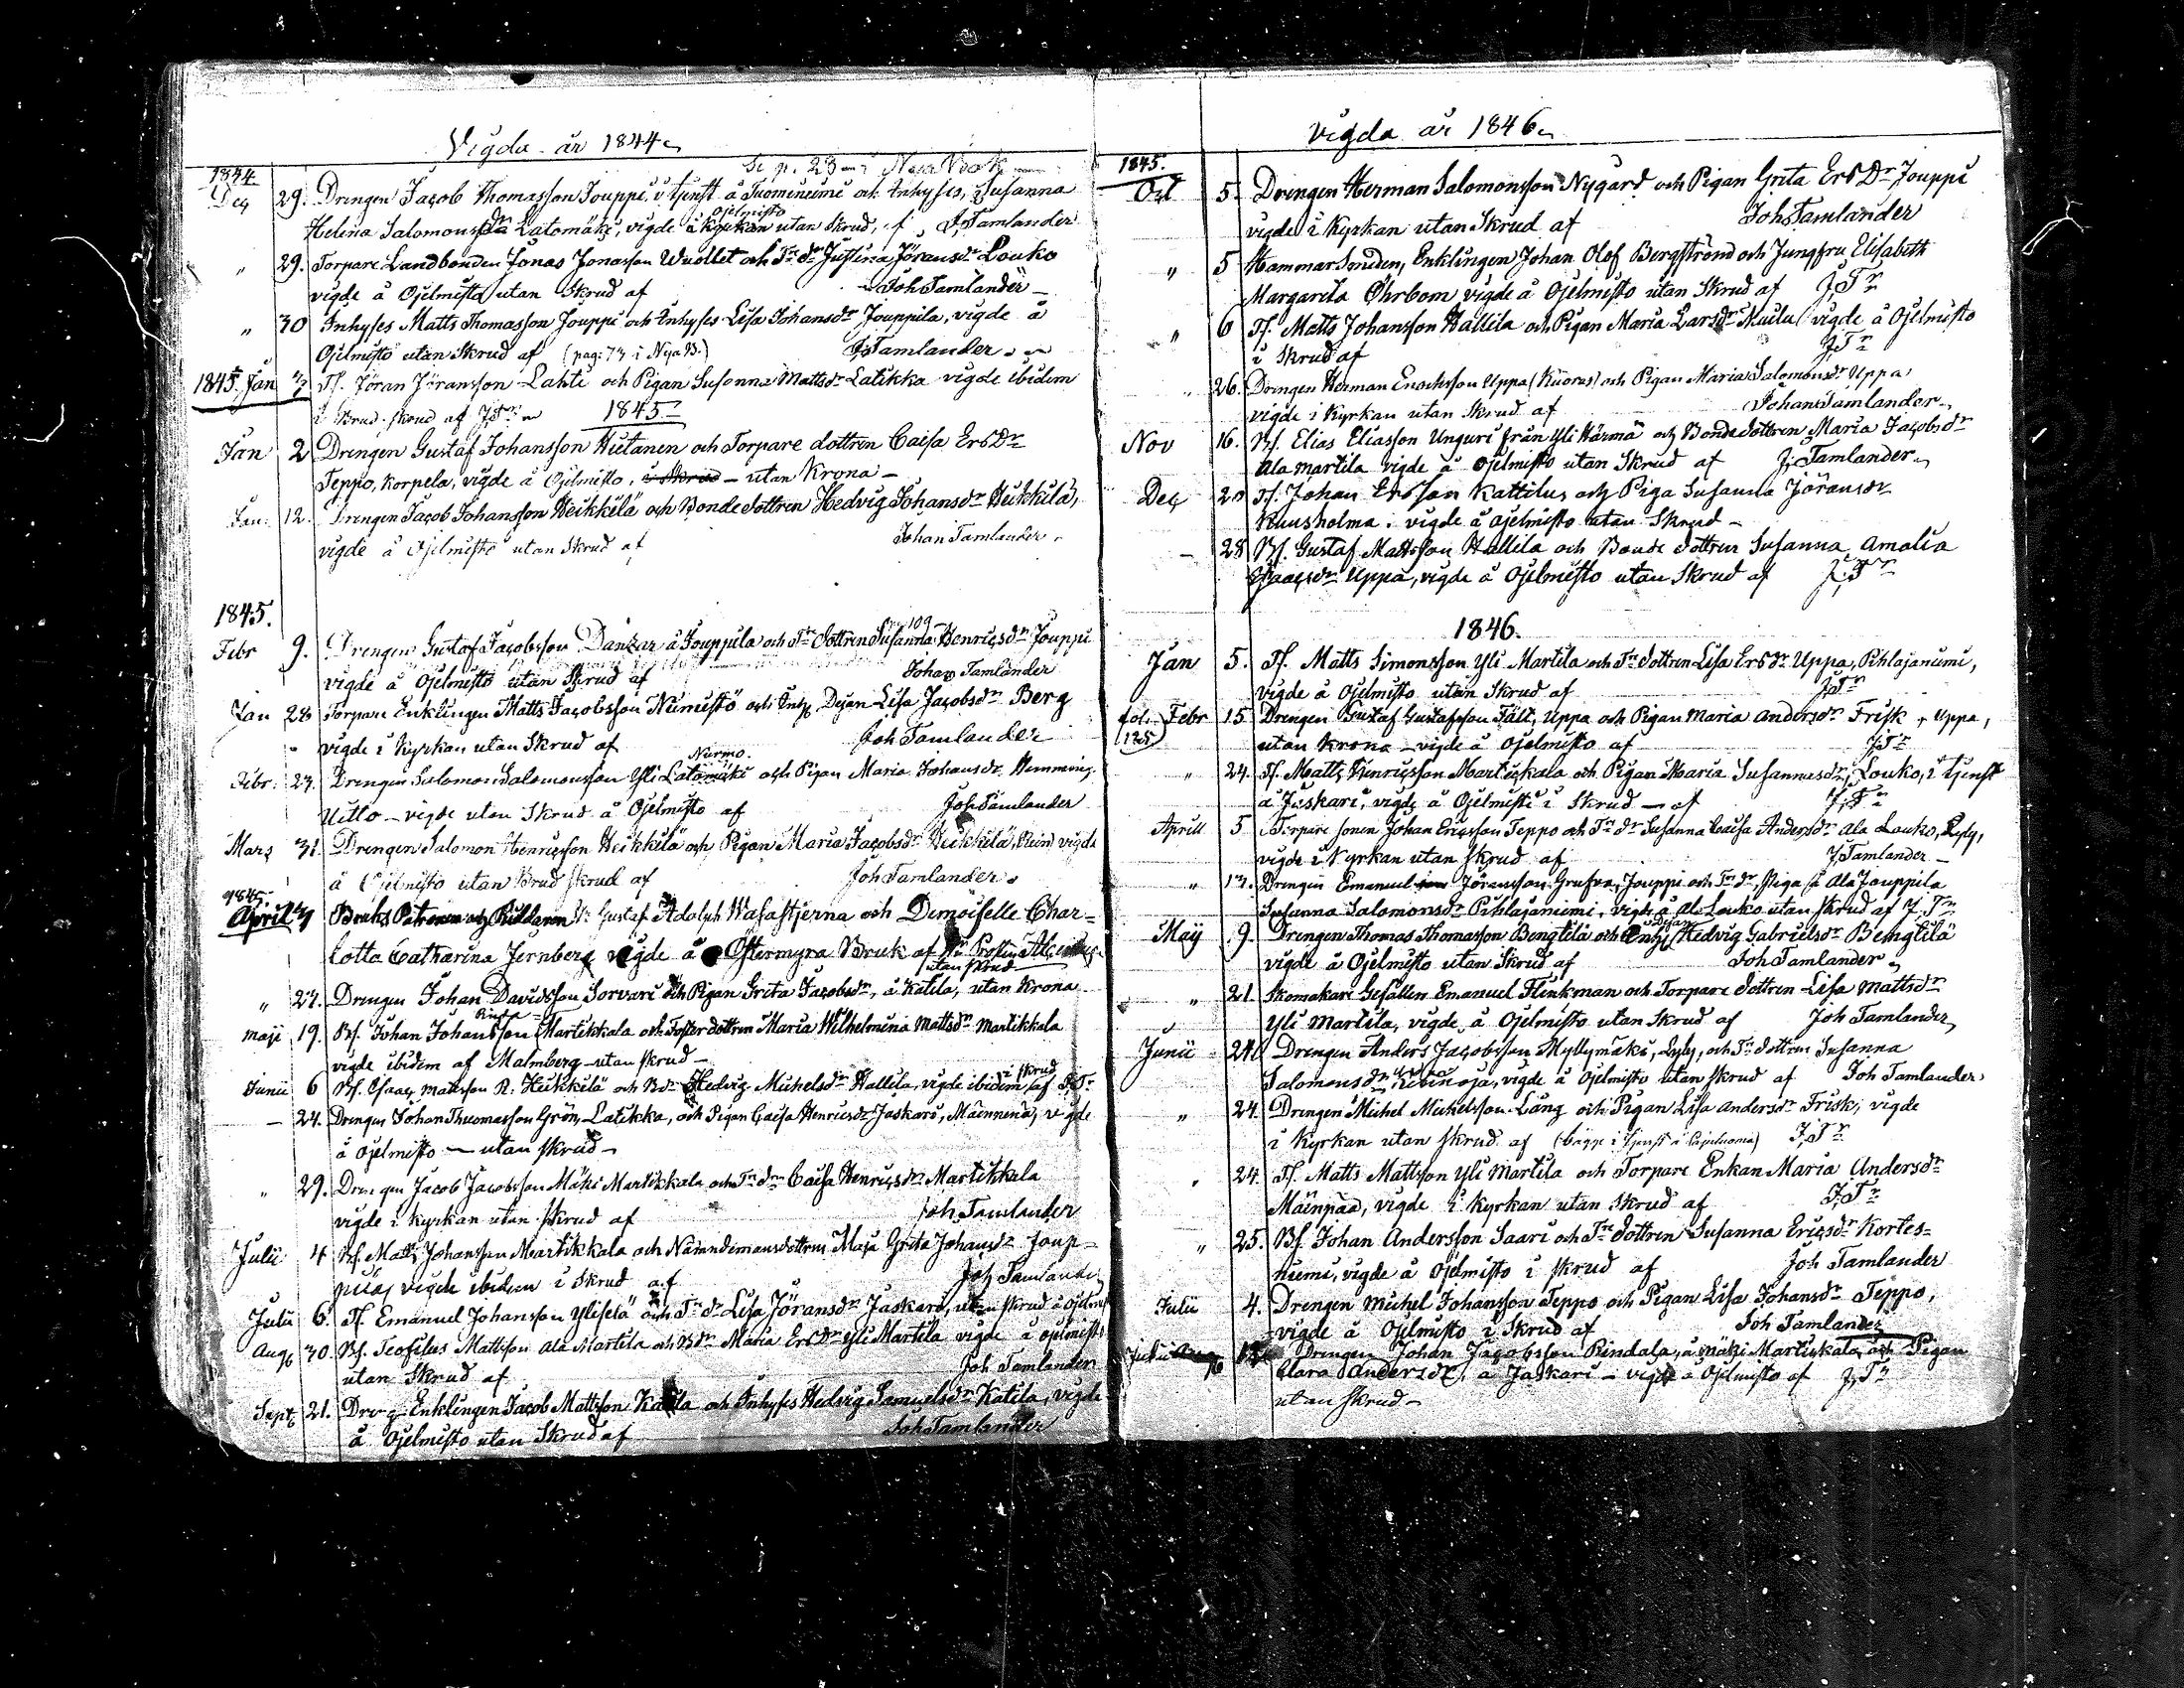 Vigda år 1844
Se p. 23 i Nya Bok
1844.
Dec 29. Drengen Jacob Thomasson Jouppi i tjenst å Tuominiemi och Inhyses, Susanna
Helena Salomonsdr Latomäki, vigde i Kyrkan Ojelmisto utan Skrud, af J. Tamlander
" 29. Torpare Landbonden Jonas Jonasson Wuollet och Tn dr Justina Jöransdr Louko
vigde å Ojelmisto utan Skrud af Joh Tamlander
" 30 Inhyses Matts Thomasson Jouppi och Inhyses Lisa Johansdr Jouppila, vigde å
Ojelmisto utan Skrud af (pag. 73 i Nya B.) J. Tamlander
1845, Jan Tf. Jöran Jöransson Lahti och Pigan Susanna Mattsdr Latikka vigde ibidem
i Brud skrud af J.Tr 1845
Jan 2 Drengen Gustaf Johansson Hietanen och Torpare dottren Caisa Ersdr
Teppo, Korpela, vigde å Ojelmisto, i Skrud - utan Krona -
Jan. 12. Drengen Jacob Johansson Heikkilä och Bondedottren Hedvig Johansdr Heikkilä,
vigde å Ojelmisto utan Skrud af Johan Tamlander
1845.
109
Febr 9. Drengen Gustaf Jacobsson Danzar å Jouppila och Tre Dottren Susanna Henricsdr Jouppi
vigde å Ojelmisto utan Skrud af Johan Tamlander
Jan 28 Torpare Enklingen Matts Jacobsson Niemistö och Inhs Dejan Lisa Jacobsdr Berg
vigde i Kyrkan utan Skrud af Joh Tamlander
Nurmo
Febr. 23. Drengen Salomon Salomonsson Yli Latomäki och Pigan Maria Johansdr Hemming
Uitto - vigde utan Skrud å Ojelmisto af Joh Tamlander
Mars 31. Drengen Salomon Henricsson Heikkilä och Pigan Maria Jacobsdr Heikkilä, vigde
å Ojelmisto utan Brud skrud af Joh Tamlander
1845.
April Bruks Patronen och Riddaren Gustaf Adolph Wasastjerna och Demoiselle Char=
lotta Catharina Jernberg vigde å Östermyra Bruk af
utan skrud
" 27. Drengen Johan Davidsson Sorvari och Pigan Greta Jacobsdr, å Katila, utan Krona
Maji 19. Bs. Johan Johansson Martikkala och Fosterdottren Maria Wilhelmina Mattsdr Martikkala
vigde ibidem af Malmberg utan skrud -
Junii 6 Bs. Isaac Mattsson R. Heikkilä och Bdr Hedvig Michelsdr Hallila, vigde ibidem i skrud af J.Tr
- 24. Drengen Johan Thomasson Grön, Latikka, och Pigan Caisa Henricsdr Jaskari, vigde
å Ojelmisto - utan skrud -
" 29. Drengen Jacob Jacobsson Mäki Martikkala och Tn dr Caisa Henricsdr Martikkala
vigde i Kyrkan utan skrud af Joh. Tamlander
Julii 4 Bs. Matts Johansson Martikkala och Nämndemansdottren Maja Greta Johansdr Joup-
pila, vigde ibidem i Skrud af Joh Tamlander
Julii 6. Tf Emanuel Johansson Yliselä och Tn dr Lisa Jöransdr Jaskari, utan skrud å Ojelm.
Aug 30. Bs. Teofilus Mattsson Ala Martila och Bdr Maria Ersdr Yli Martila vigde å Ojelmisto
utan Skrud af Joh Tamlander
Sept. 21. Dreng Enklingen Jacob Mattsson Katila och Inhyses Hedvig Samuelsdr Katila, vigde
å Ojelmisto utan Skrud af Joh Tamlander
Vigda år 1846
1845.
Oct 5. Drengen Herman Salomonsson Nygård och Pigan Greta Ersdr Jouppi
vigde i Kyrkan utan Skrud af Joh Tamlander
" 5 Hammarsmeden, Enklingen Johan Olof Bergström och Jungfru Elisabeth
Margareta Öhrbom vigde å Ojelmisto utan Skrud af J.Tr
" 6 Tf. Matts Johansson Hallila och Pigan Maria Larsdr Kuila vigde å Ojelmisto
i Skrud af J.Tr
" 26. Drengen Herman Enochsson Uppa (Kuoras) och Pigan Maria Salomonsdr Uppa
vigde i Kyrkan utan Skrud af Johan Tamlander
Nov 16. Bs. Elias Eliasson Unguri från Yli Härmä och Bondedottren Maria Jacobsdr
Ala martila vigde å Ojelmisto utan Skrud af J. Tamlander
Dec 28 Tf. Johan Ersson Kattilus och Piga Susanna Jöransdr
Kuusholma. vigde å Ojelmisto utan Skrud -
- 28 Bs. Gustaf Mattsson Hallila och Bonde dottren Susanna Amalia
Isaacsdr Uppa, vigde å Ojelmisto utan Skrud af J.Tr
1846.
Jan 5. Tf. Matts Simonsson Yli Martila och Tre dottren Lisa Ersdr Uppa, Pihlajaniemi,
vigde å Ojelmisto utan Skrud af J.Tr
fol. 125 Febr 15 Drengen Gustaf Gustafsson Fält, Uppa och Pigan Maria Andersdr Frisk, Uppa,
utan Krona - vigde å Ojelmisto af J.Tr
" 24. Tf. Matts Henricsson Martickala och Pigan Maria Susannasdr, Louko, i tjenst
å Jaskari, vigde å Ojelmisto i Skrud - af J.Tr
Aprill 5 Torpare sonen Johan Ericsson Teppo och Tn dr Susanna Caisa Andersdr Ala Louko, Lyly,
vigde i Kyrkan utan skrud af J. Tamlander -
" 13. Drengen Emanuel Jöransson Grufva, Jouppi och Tn dr, Piga å Ala Jouppila
Susanna Salomonsdr Pihlajaniemi, vigde å Al. Louko utan skrud af J.Tr
Maij 9. Drengen Thomas Thomasson Bengtilä och Inhs Dejan Hedvig Gabrielsdr Bengtilä
vigde å Ojelmisto utan Skrud af Joh Tamlander
" 21 Skomakare Gesällen Emanuel Flinkman och Torpare dottren Lisa Mattsdr
Yli Martila, vigde å Ojelmisto utan Skrud af Joh Tamlander
Junii 24 Drengen Anders Jacobsson Myllymäki, Lyly, och Tre dottren Susanna
Salomonsdr Kivinoja, vigde å Ojelmisto utan skrud af Joh Tamlander
" 24. Drengen Michel Michelsson Lång och Pigan Lisa Andersdr Frisk, vigde
i Kyrkan utan skrud af (bägge i tjenst å Pajuluoma) J.Tr
" 24. Tf. Matts Mattsson Yli Martila och Torpare Enkan Maria Andersdr
Mäinpää, vigde i Kyrkan utan skrud af J.Tr
" 25. Bs. Johan Andersson Saari och Tre dottren Susanna Ericsdr Kortes=
niemi, vigde å Ojelmisto i skrud af Joh Tamlander
Julii 4. Drengen Michel Johansson Teppo och Pigan Lisa Johansdr Teppo,
vigde å Ojelmisto i Skrud af Joh Tamlander
Julii Drengen Johan Jacobsson Rindala, å Mäki Martickala, och Pigan
Clara Andersdr, å Jaskari - vigde å Ojelmisto af J.Tr
utan skrud -